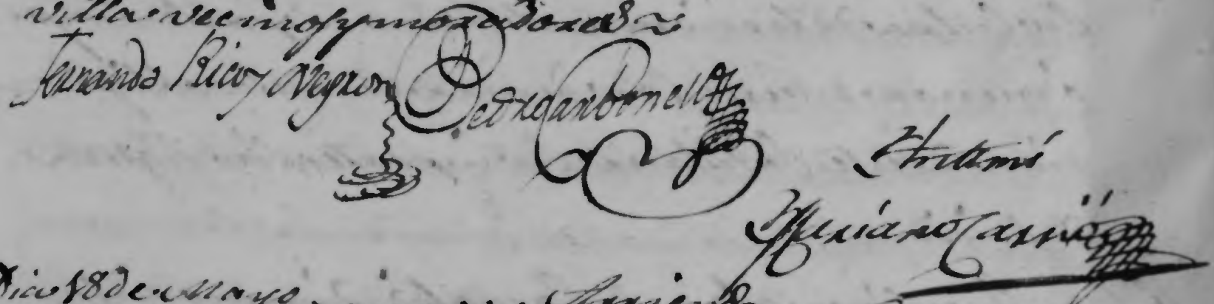 villa vecinos y moradores
Fernando Rico y Negron Pedro Carbonell
Ante mi
Mariano Carrió
Dia 18 de Mayo